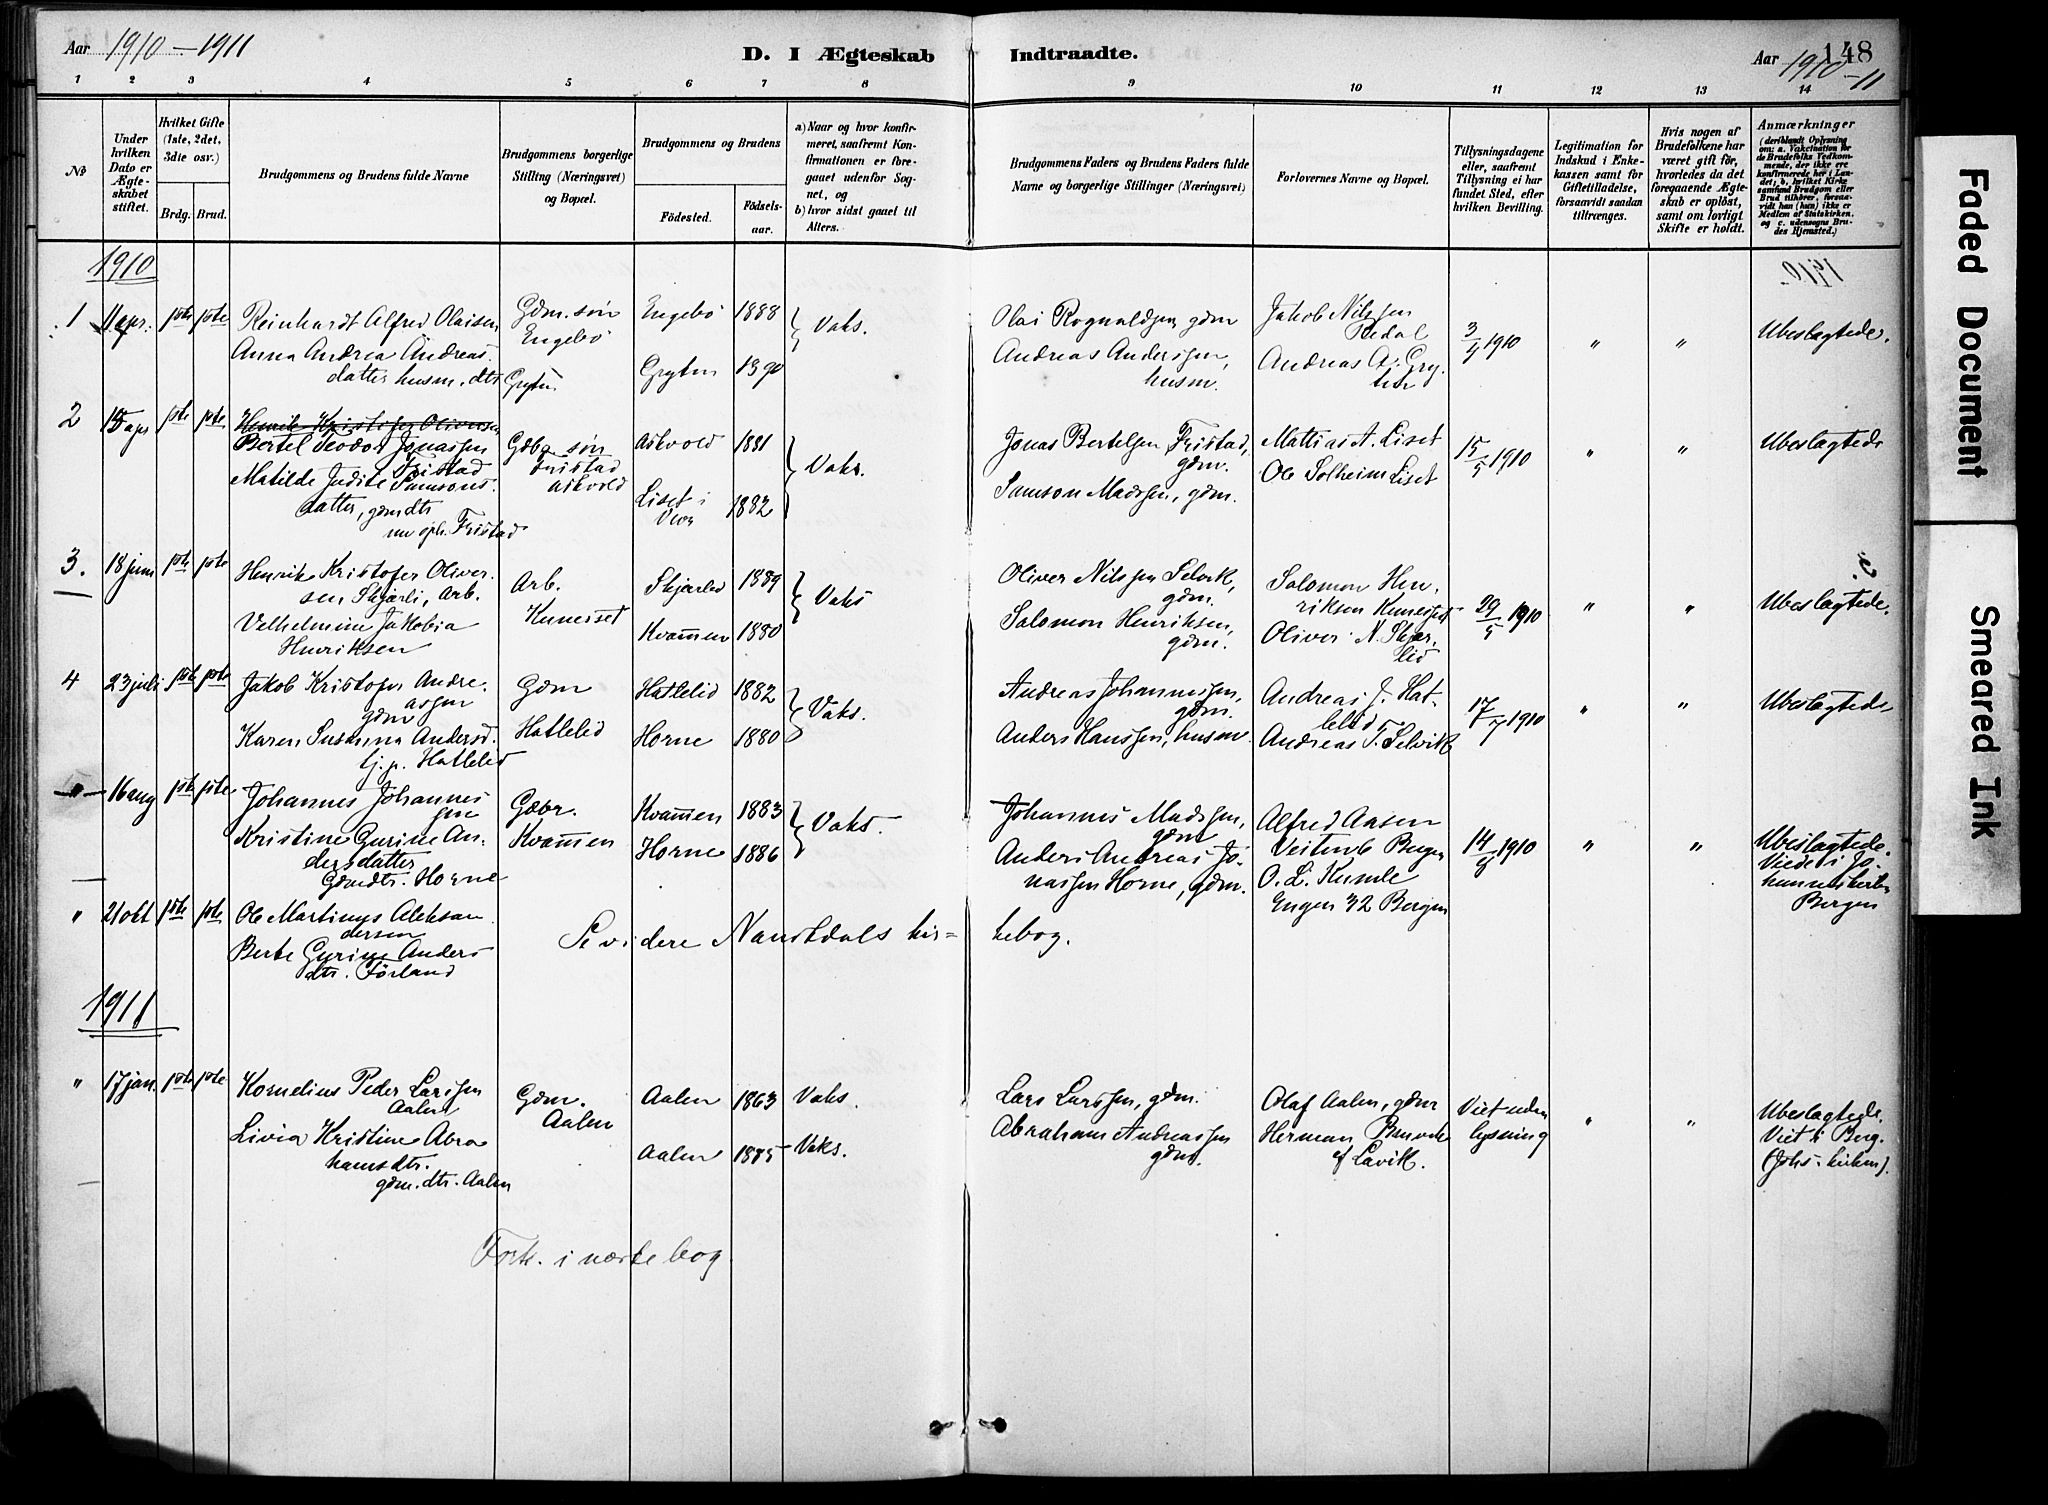 Aar 1910–1911
D. I Ægteskab Indtraadte.
Aar 1910–11
148
1 2 3 4 5 6 7 8 9 10 11 12 13 14
No
Under hvilken Dato er Ægteskabet stiftet.
Hvilket Gifte (1ste, 2det, 3die osv.)
Brdg. Brud.
Brudgommens og Brudens fulde Navne
Brudgommens borgerlige Stilling (Næringsvei) og Bopæl.
Brudgommens og Brudens
Fødested. Fødselsaar.
a) Naar og hvor konfirmeret, saafremt Konfirmationen er foregaaet udenfor Sognet, og
b) hvor sidst gaaet til Alters.
Brudgommens Faders og Brudens Faders fulde Navne og borgerlige Stillinger (Næringsvei)
Forlovernes Navne og Bopæl.
Tillysningsdagene eller, saafremt Tillysning ei har fundet Sted, efter hvilken Bevilling.
Legitimation for Indskud i Enkekassen samt for Giftetilladelse, forsaavidt saadan tiltrænges.
Hvis nogen af Brudefolkene har været gift før, hvorledes da det foregaaende Ægteskab er opløst, samt om lovligt Skifte er holdt.
Anmærkninger
(deriblandt Oplysning om: a. Vakcination for de Brudefolks Vedkommende, der ikke ere konfirmerede her i Landet; b. hvilket Kirkesamfund Brudgom eller Brud tilhører, forsaavidt han (hun) ikke er Medlem af Statskirken, og c. udensogns Brudes Hjemsted.)
1910
1 11 apr. 1ste 1ste Reinhardt Alfred Olaisen
Gdm. søn Engebø
Engebø 1888
Vaks.
Olai Rognaldsen gdm
Jakob Nilssen Redal
3/4 1910 " " Ubeslagtede.
Anna Andrea Andreas.
datter husm. dtr
Gryten
Gryten 1890
Andreas Anderssen, husm.
Andreas A. Gryten
2 15 apr 1ste 1ste Henrik Kristofer Oliversen
Bertel Teodor Jonassen
Fristad
Gdbr. søn
Fristad
Askvold
Askvold 1881
Vaks.
Jonas Bertelsen Fristad, gdm.
Mattias A. Liset
15/5 1910 " " Ubeslagtede
Matilde Judite Samsons.
datter, gdmdtr
nu oph. Fristad
Liset i
1882
Samson Madssen, gdm.
Ole Solheim Liset
3. 18 juni 1ste 1ste Henrik Kristofer Oliver.
sen Skjærli, Arb.
Arb.
Kumeiset
Skjærlid 1889
Vaks
Oliver Nilssen Selvik, gdm.
Salomon Hen.
riksen Kumesset
29/5 1910 " " Ubeslagtede.
Velhelmine Jakobia
Henriksen
Kvammen 1880
Salomon Henriksen, gdm.
Oliver N. Skjær.
lid
4 23 juli 1ste 1ste Jakob Kristofer Andre.
assen
gdm
Gdm
Hatlelid
Hatlelid 1882
Vaks.
Andreas Johannessen, gdm.
Andreas J. Hat-
lelid
17/7 1910 " " Ubeslagtede
Karen Susanna Andersd.
tj. p. Hatlelid
Horne 1880
Anders Hanssen, husm.
Andreas T. Selvik
" 16 aug 1ste 1ste Johannes Johannes
sen
Gdbr.
Kvammen
Kvammen 1883
Vaks.
Johannes Madssen, gdm
Alfred Aasen
14/8 1910 " " Ubeslagtede.
Viede i Jo-
hanneskirken
Bergen
Kristine Gurine An-
dersdatter
Gdmdtr. Horne
Horne 1886
Anders Andreas Jo-
nassen Horne, gdm.
Bergen
O. L. Kumle
Engen 32 Bergen
" 21 okt 1ste 1ste Ole Martinus Aleksan
dersen
Berte Gurine Anders
dtr. Førland
Se videre Naustdals kir=kebog.
1911
" 17 jan. 1ste 1ste Kornelius Peder Larssen
Aalen
Gdm.
Aalen
Aalen 1863 Vaks.
Lars Larssen, gdm.
Olaf Aalen, gdm
Viet uden
lysning
" " Ubeslagtede.
Viet i Berg.
(Johs-kirken).
Livia Kristine Abra
hamsdtr.
gdm. dtr. Aalen
Aalen 1885 Vaks.
Abraham Andreassen
gdm.
Herman
af Lavik.
Forts. i næste bog.
Faded Document
Smeared Ink